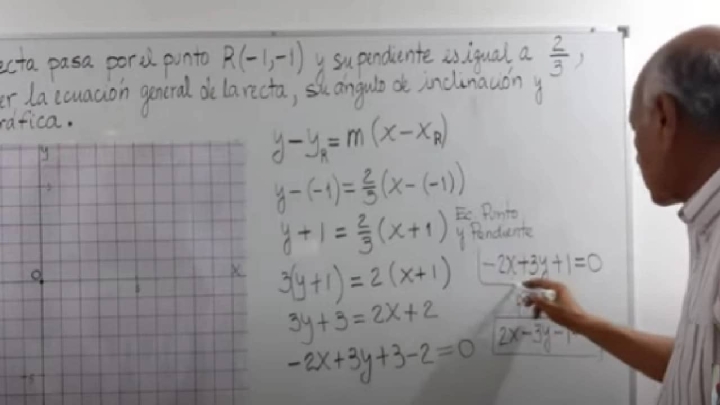 ecta pasa por el punto R(-1,-1) y su pendiente es igual a 2/3,
er la ecuación general de la recta, su ángulo de inclinación y
ráfica.
y-y_R=m(x-x_R)
y-(-1)=2/3(x-(-1))
y+1=2/3(x+1) Ec. Punto y Pendiente
3(y+1)=2(x+1)
3y+3=2x+2
-2x+3y+3-2=0
-2x+3y+1=0
2x-3y-1
y
x
0